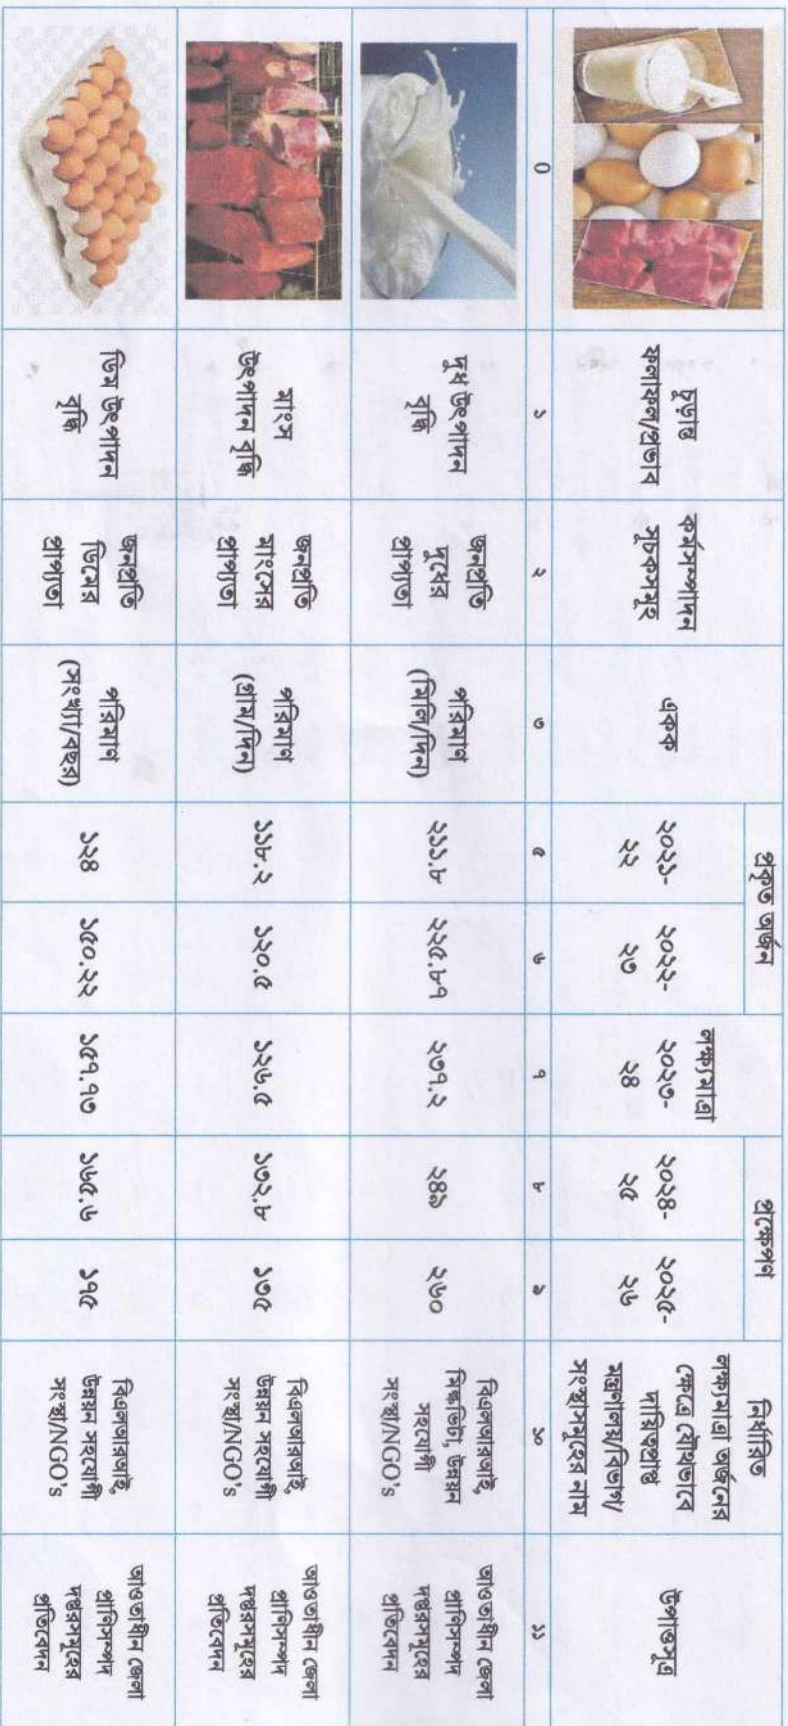 চুড়ান্ত
ফলাফল/প্রভাব
কর্মসম্পাদন
সুচকসমূহ
একক
প্রকৃত অর্জন
২০২১-
২২
২০২২-
২৩
লক্ষ্যমাত্রা
২০২৩-
২৪
প্রক্ষেপণ
২০২৪-
২৫
২০২৫-
২৬
নির্ধারিত
লক্ষ্যমাত্রা অর্জনের
ক্ষেত্রে যৌথভাবে
দায়িত্বপ্রাপ্ত
মন্ত্রণালয়/বিভাগ/
সংস্থাসমূহের নাম
উপাত্তসূত্র
0
১
২
৩
৫
৬
৭
৮
৯
১০
১১
দুধ উৎপাদন
বৃদ্ধি
জনপ্রতি
দুধের
প্রাপ্যতা
পরিমান
(মিলি/দিন)
২১১.৮
২২৫.৮৭
২৩৭.২
২৪৯
২৬০
বিএলআরআই,
মিল্কভিটা, উন্নয়ন
সহযোগী
সংস্থা/NGO's
আওতাধীন জেলা
প্রাণিসম্পদ
দপ্তরসমূহের
প্রতিবেদন
মাংস
উৎপাদন বৃদ্ধি
জনপ্রতি
মাংসের
প্রাপ্যতা
পরিমান
(গ্রাম/দিন)
১১৮.২
১২০.৫
১২৬.৫
১৩২.৮
১৩৫
বিএলআরআই,
উন্নয়ন সহযোগী
সংস্থা/NGO's
আওতাধীন জেলা
প্রাণিসম্পদ
দপ্তরসমূহের
প্রতিবেদন
ডিম উৎপাদন
বৃদ্ধি
জনপ্রতি
ডিমের
প্রাপ্যতা
পরিমান
(সংখ্যা/বছর)
১২৪
১৫০.২২
১৫৭.৭৩
১৬৫.৬
১৭৫
বিএলআরআই,
উন্নয়ন সহযোগী
সংস্থা/NGO's
আওতাধীন জেলা
প্রাণিসম্পদ
দপ্তরসমূহের
প্রতিবেদন